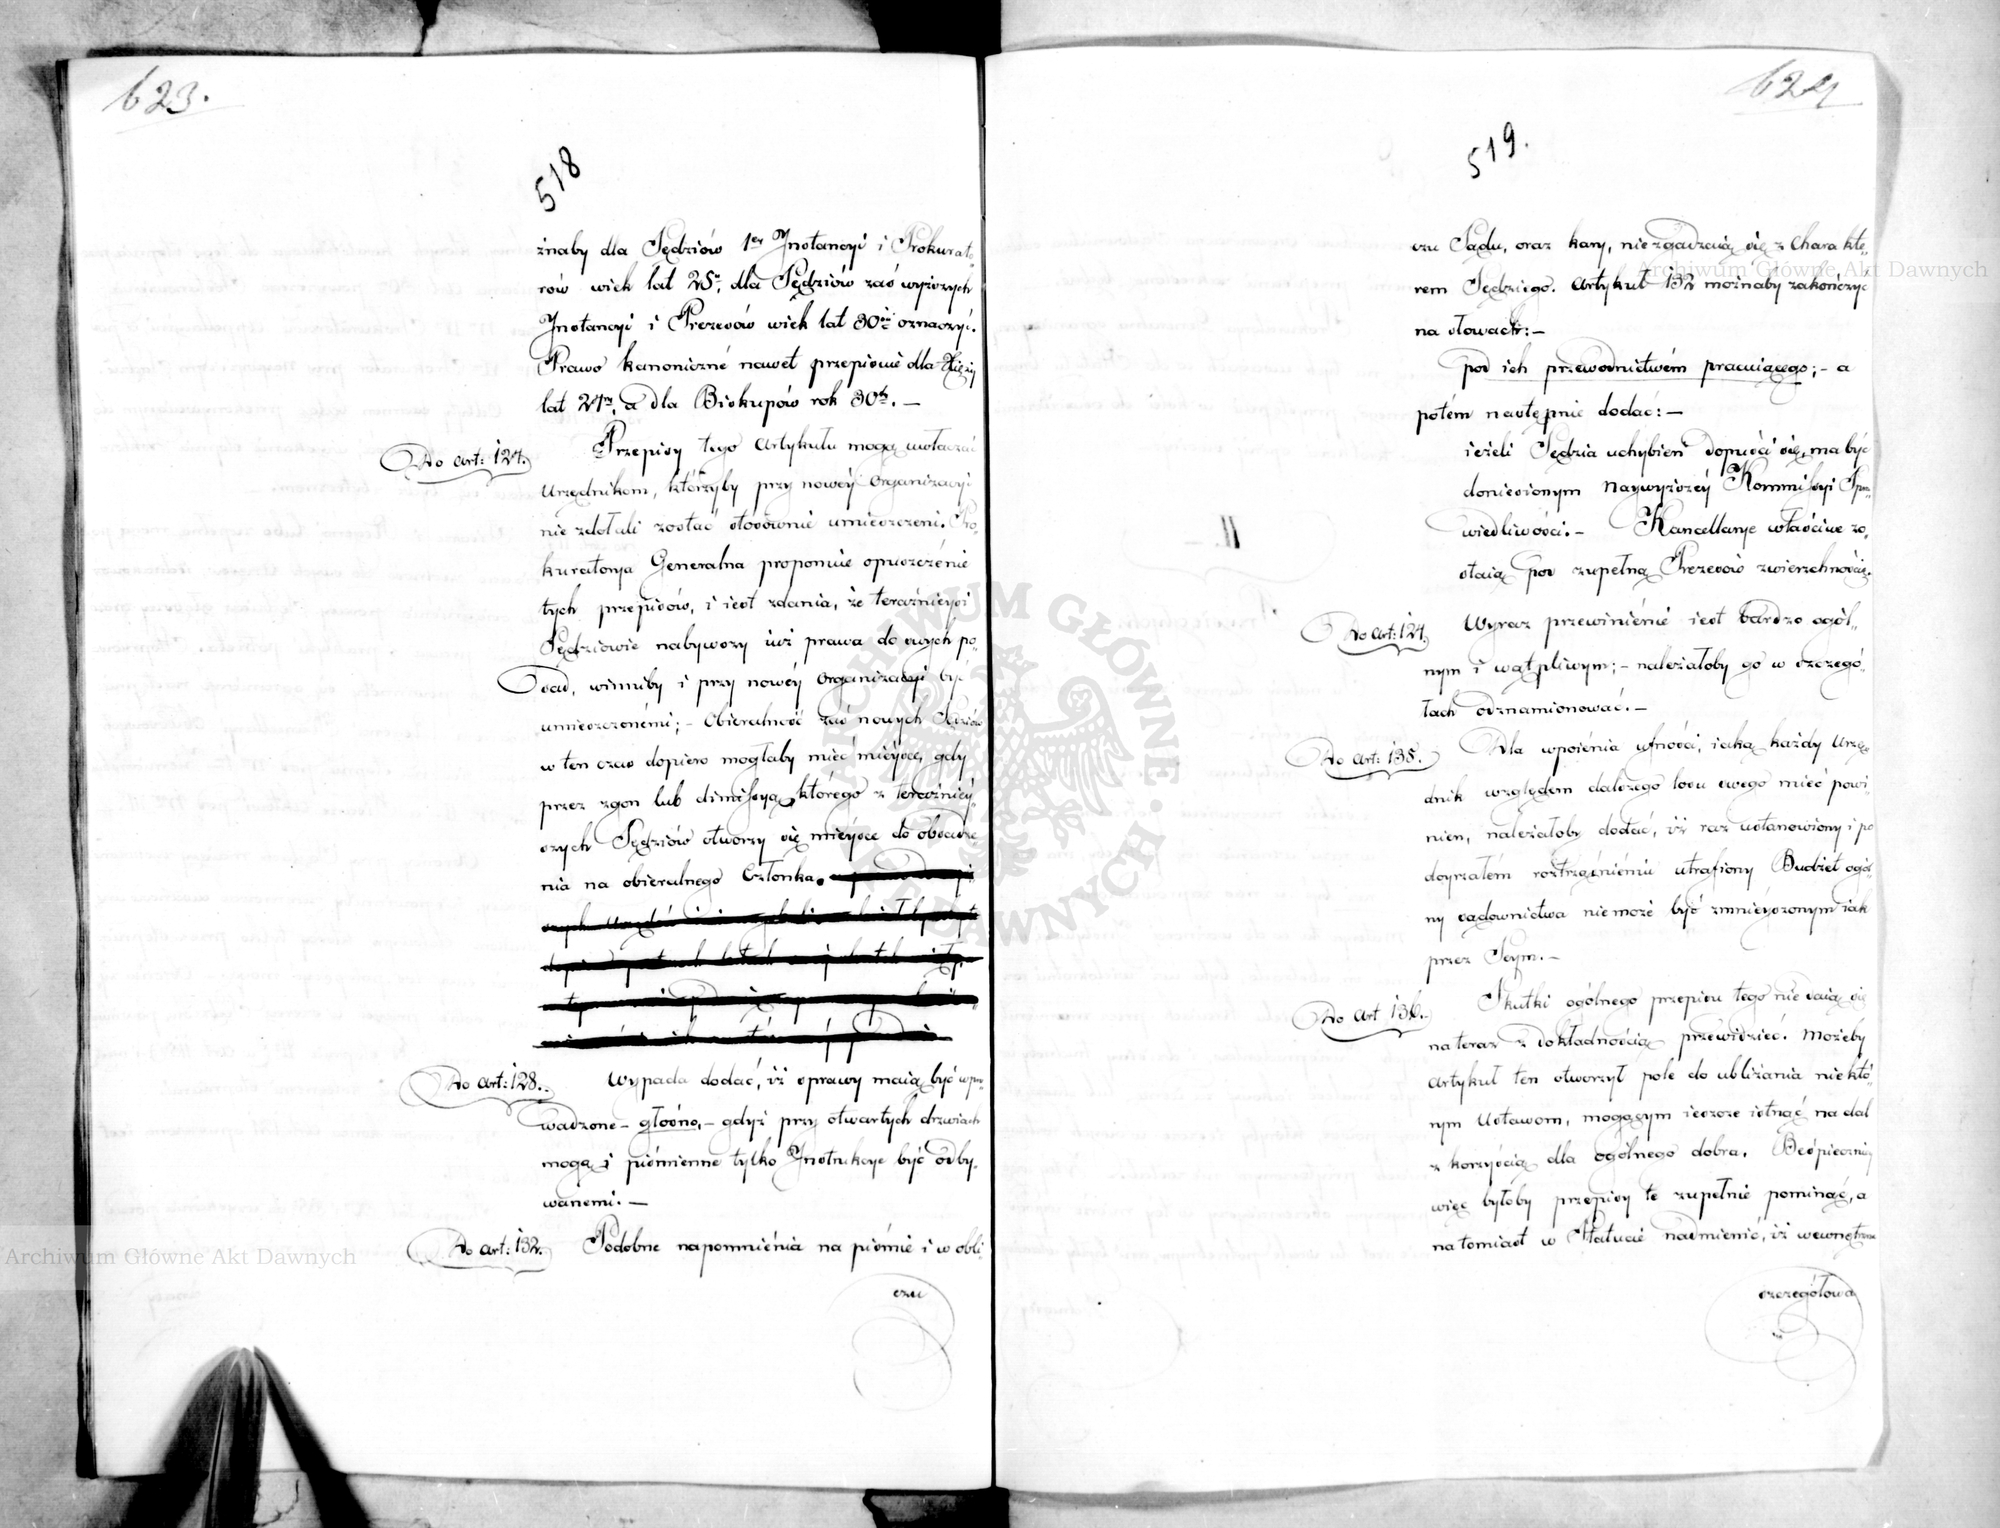 623.
518
żnaby dla Sędziów 1ey Instancyi i Prokurato-
rów wiek lat 25u, dla Sędziów zaś wyższych
Instancyi i Prezesów wiek lat 30u oznaczyć.
Prawo kanoniczne nawet przepisuie dla Xięży
lat 24ry, a dla Biskupów rok 30ty. —
Do art: 127.
Przepisy tego Artykułu mogą uwłaczać
Urzędnikom, którzyby przy nowéy Organizacyi
nie zdołali zostać stósownie umieszczeni. Pro-
kuratorya Generalna proponuie opuszczenie
tych przepisów, i iest zdania, że teraźnieysi
Sędziowie nabywszy iuż prawa do swych po-
sad, winniby i przy nowéy Organizacyi być
umieszczonémi; - Obieralność zaś nowych Sędziów
w ten czas dopiero mogłaby mieć mieysce, gdy
przez zgon lub dimissyą, którego z teraźniey-
szych Sędziów otworzy się mieysce do obsadze
nia na obieralnego Członka.
Do Art: 128.
Wypada dodać, iż sprawy maią być wpro-
wadzone - głośno, - gdyż przy otwartych drzwiach
mogą i piśmienne tylko Instrukcye być odby-
wanemi. —
Do art: 132.
Podobne napomniénia na piśmie i w obli-
czu
Archiwum Główne Akt Dawnych
624
519.
czu Sądu, oraz kary, nie zgadzaią się z Charakte-
rem Sędziego. Artykuł 132 możnaby zakończyć
na słowach: —
pod ich przewodnictwém pracuiącego; - a
potém następnie dodać: —
ieżeli Sędzia uchybień dopuści się, ma być
doniesionym Naywyższéy Kommissyi Spra-
wiedliwości. - Kancellarye właściwe zo-
staią pod zupełną Prezesów zwierzchnością.
Do Art: 124.
Wyraz przewiniénie iest bardzo ogól-
nym i wątpliwym; - należałoby go w szczegó-
łach odznamionować. —
Do Art: 135.
Dla wpoiénia ufności, iaką każdy Urzę
dnik względem dalszego losu swego mieć powi-
nien, należałoby dodać, iż raz ustanowiony i po
doyrzałém roztrząśniéniu utrafiony Budżet ogól-
ny sądownictwa nie może być zmnieyszonym iak
przez Seym. —
Do Art 136.
Skutki ogólnego przepisu tego nie daią się
na teraz z dokładnością przewidzieć. Możeby
Artykuł ten otworzył pole do ubliżania niektó-
rym Ustawom, mogącym ieszcze istnąć na dal
z korzyścią dla ogólnego dobra. Bespieczniéy
więc byłoby przepisy te zupełnie pominąć, a
natomiast w Statucie nadmienić, iż wewnętrzna
szczegółowa
Archiwum Główne Akt Dawnych
ARCHIWUM GŁÓWNE AKT DAWNYCH